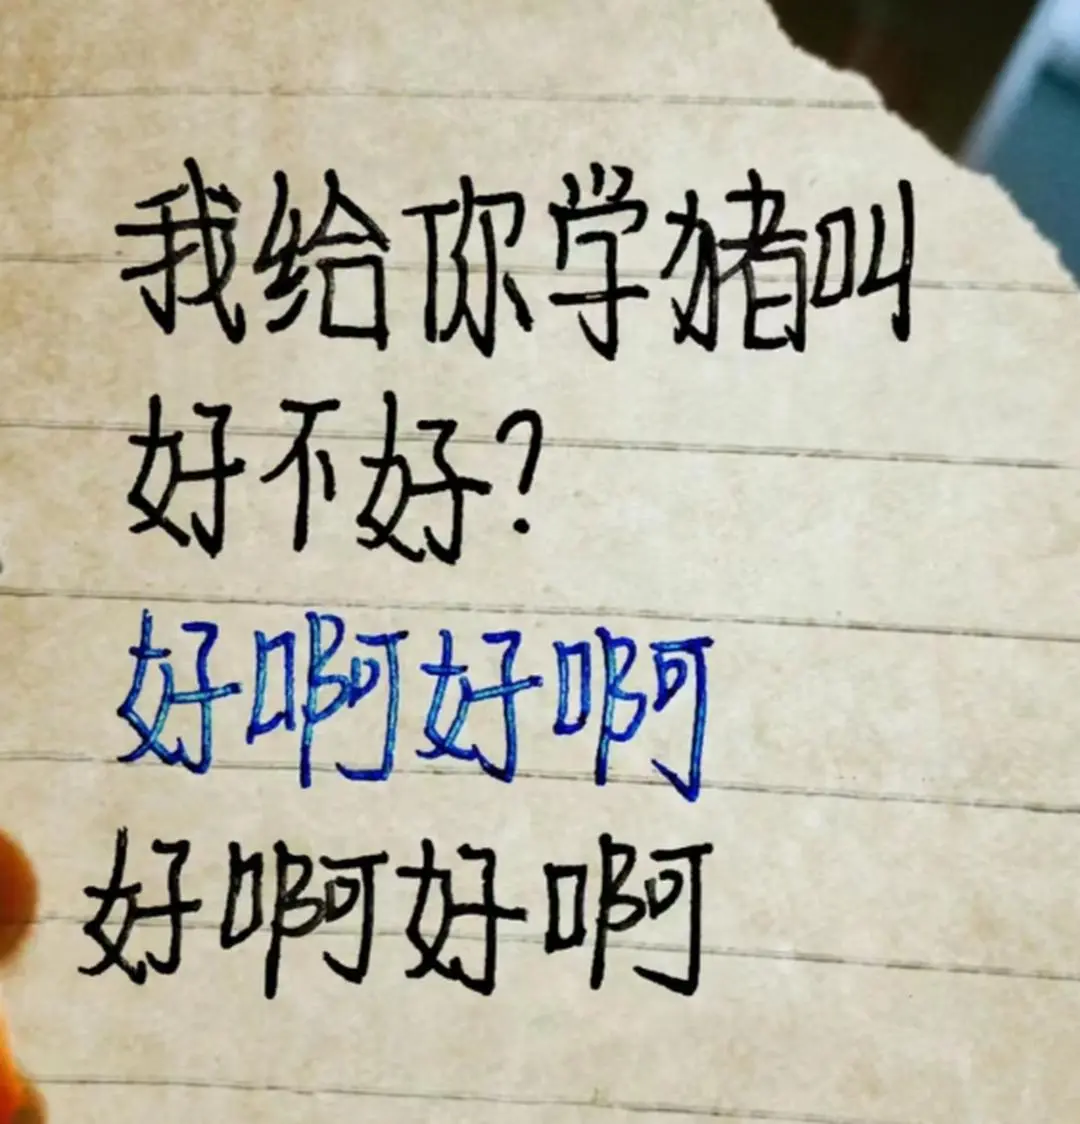 我给你学猪叫
好不好?
好啊好啊
好啊好啊